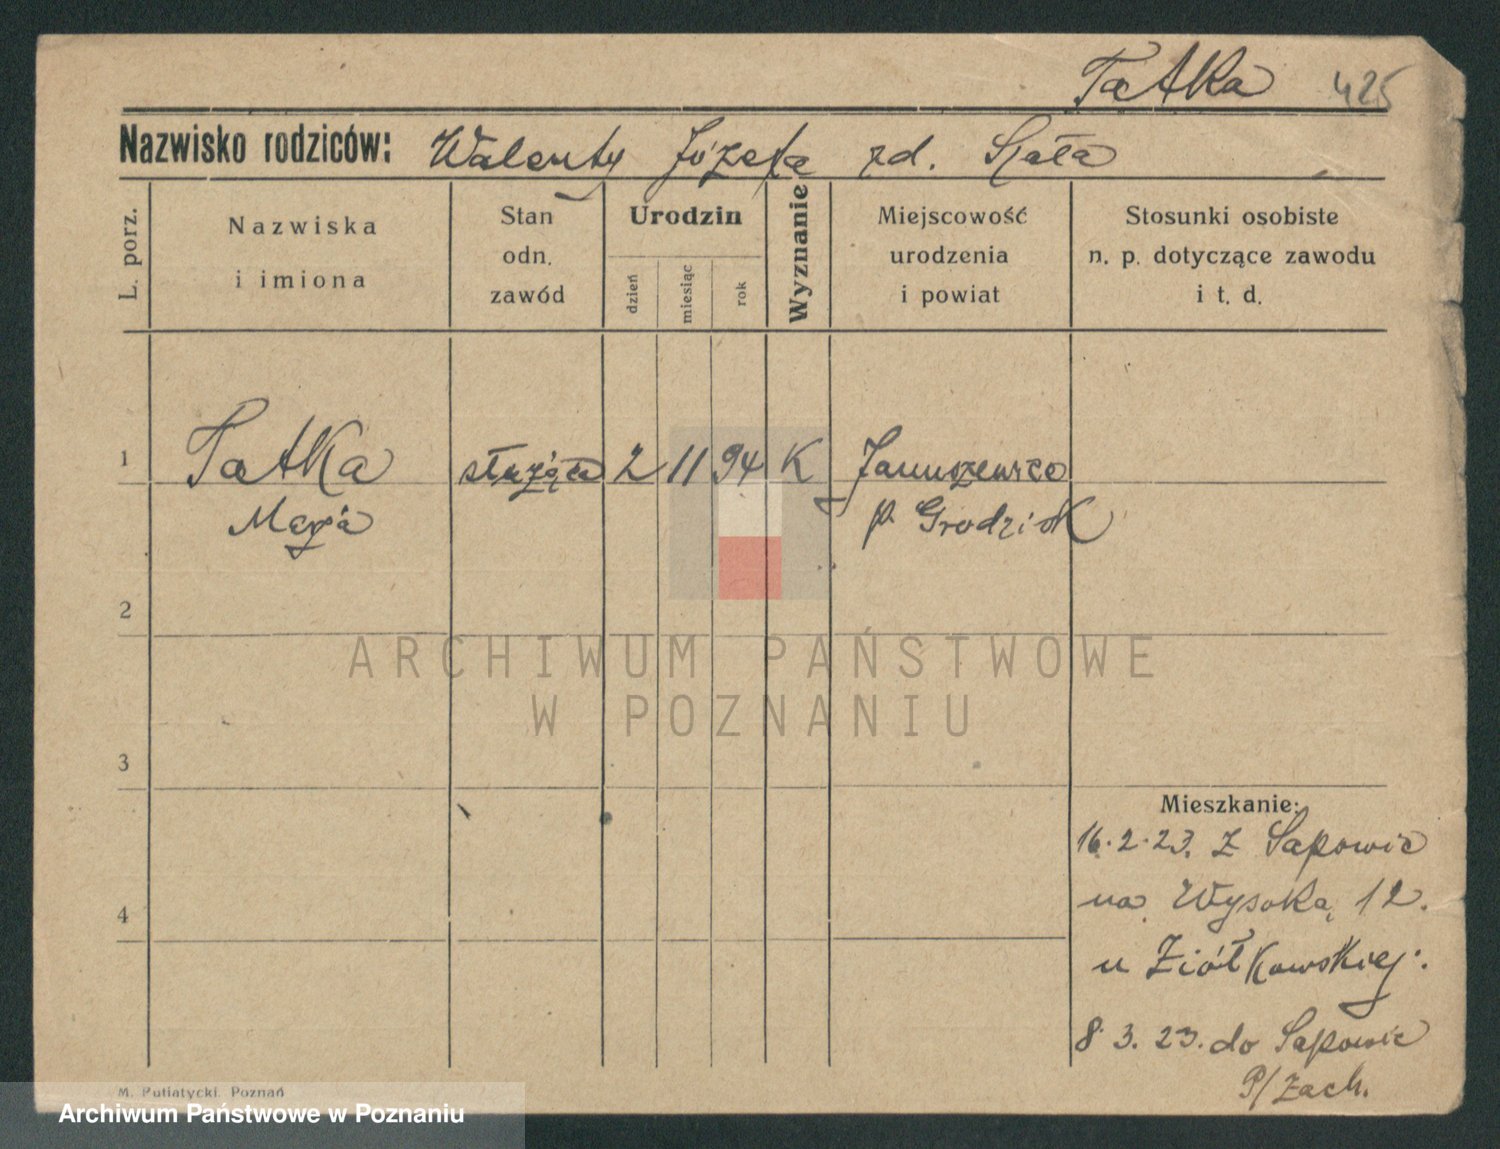 Tatka 425
Nazwisko rodziców: Walenty Józefa zd. Skała
L. porz.
Nazwiska
i imiona
Stan
odn.
zawód
Urodzin
dzień
miesiąc
rok
Wyznanie
Miejscowość
urodzenia
i powiat
Stosunki osobiste
n. p. dotyczące zawodu
i t. d.
1 Tatka służąca 2 11 94 K Januszewice
Marja p. Grodzisk
2
ARCHIWUM PAŃSTWOWE
W POZNANIU
3
Mieszkanie:
16.2.23. z Sapowic
na Wysoką 12.
4
u Ziółkowskiej.
8.3.23. do Sapowic
P/Zach.
M. Putiatycki, Poznań
Archiwum Państwowe w Poznaniu